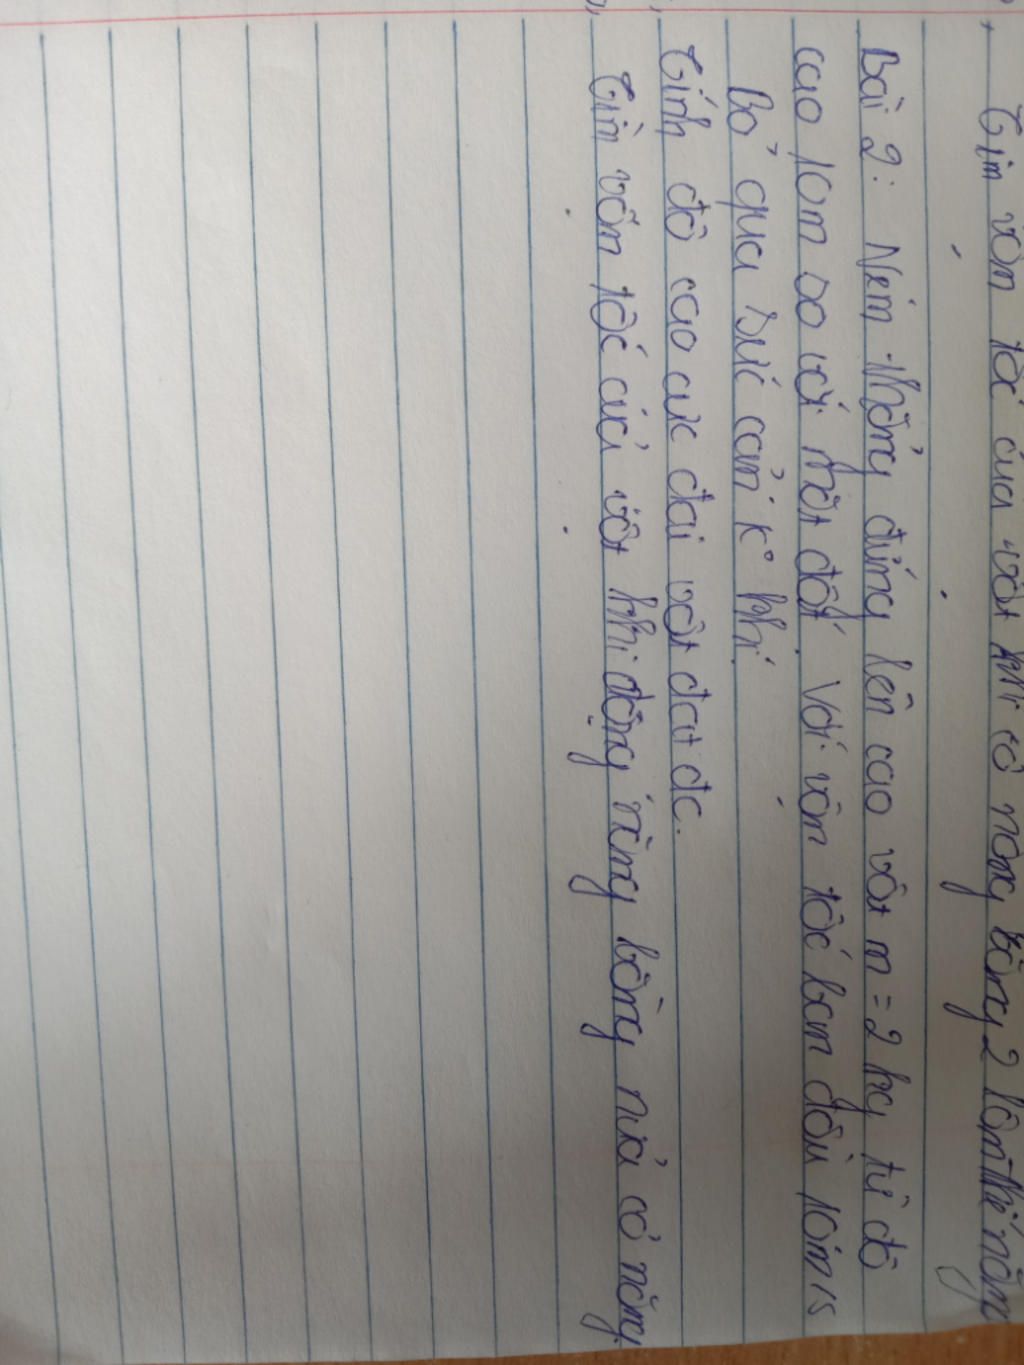 Tìm vận tốc của vật khi cơ năng bằng 2 lần thế năng
Bài 2: Ném thẳng đứng lên cao vật m = 2 kg từ độ
cao 10m so với mặt đất. Với vận tốc ban đầu 10m/s
Bỏ qua sức cản k° khí
Tính độ cao cực đại vật đạt đc.
Tìm vận tốc của vật khi động năng bằng nửa cơ năng